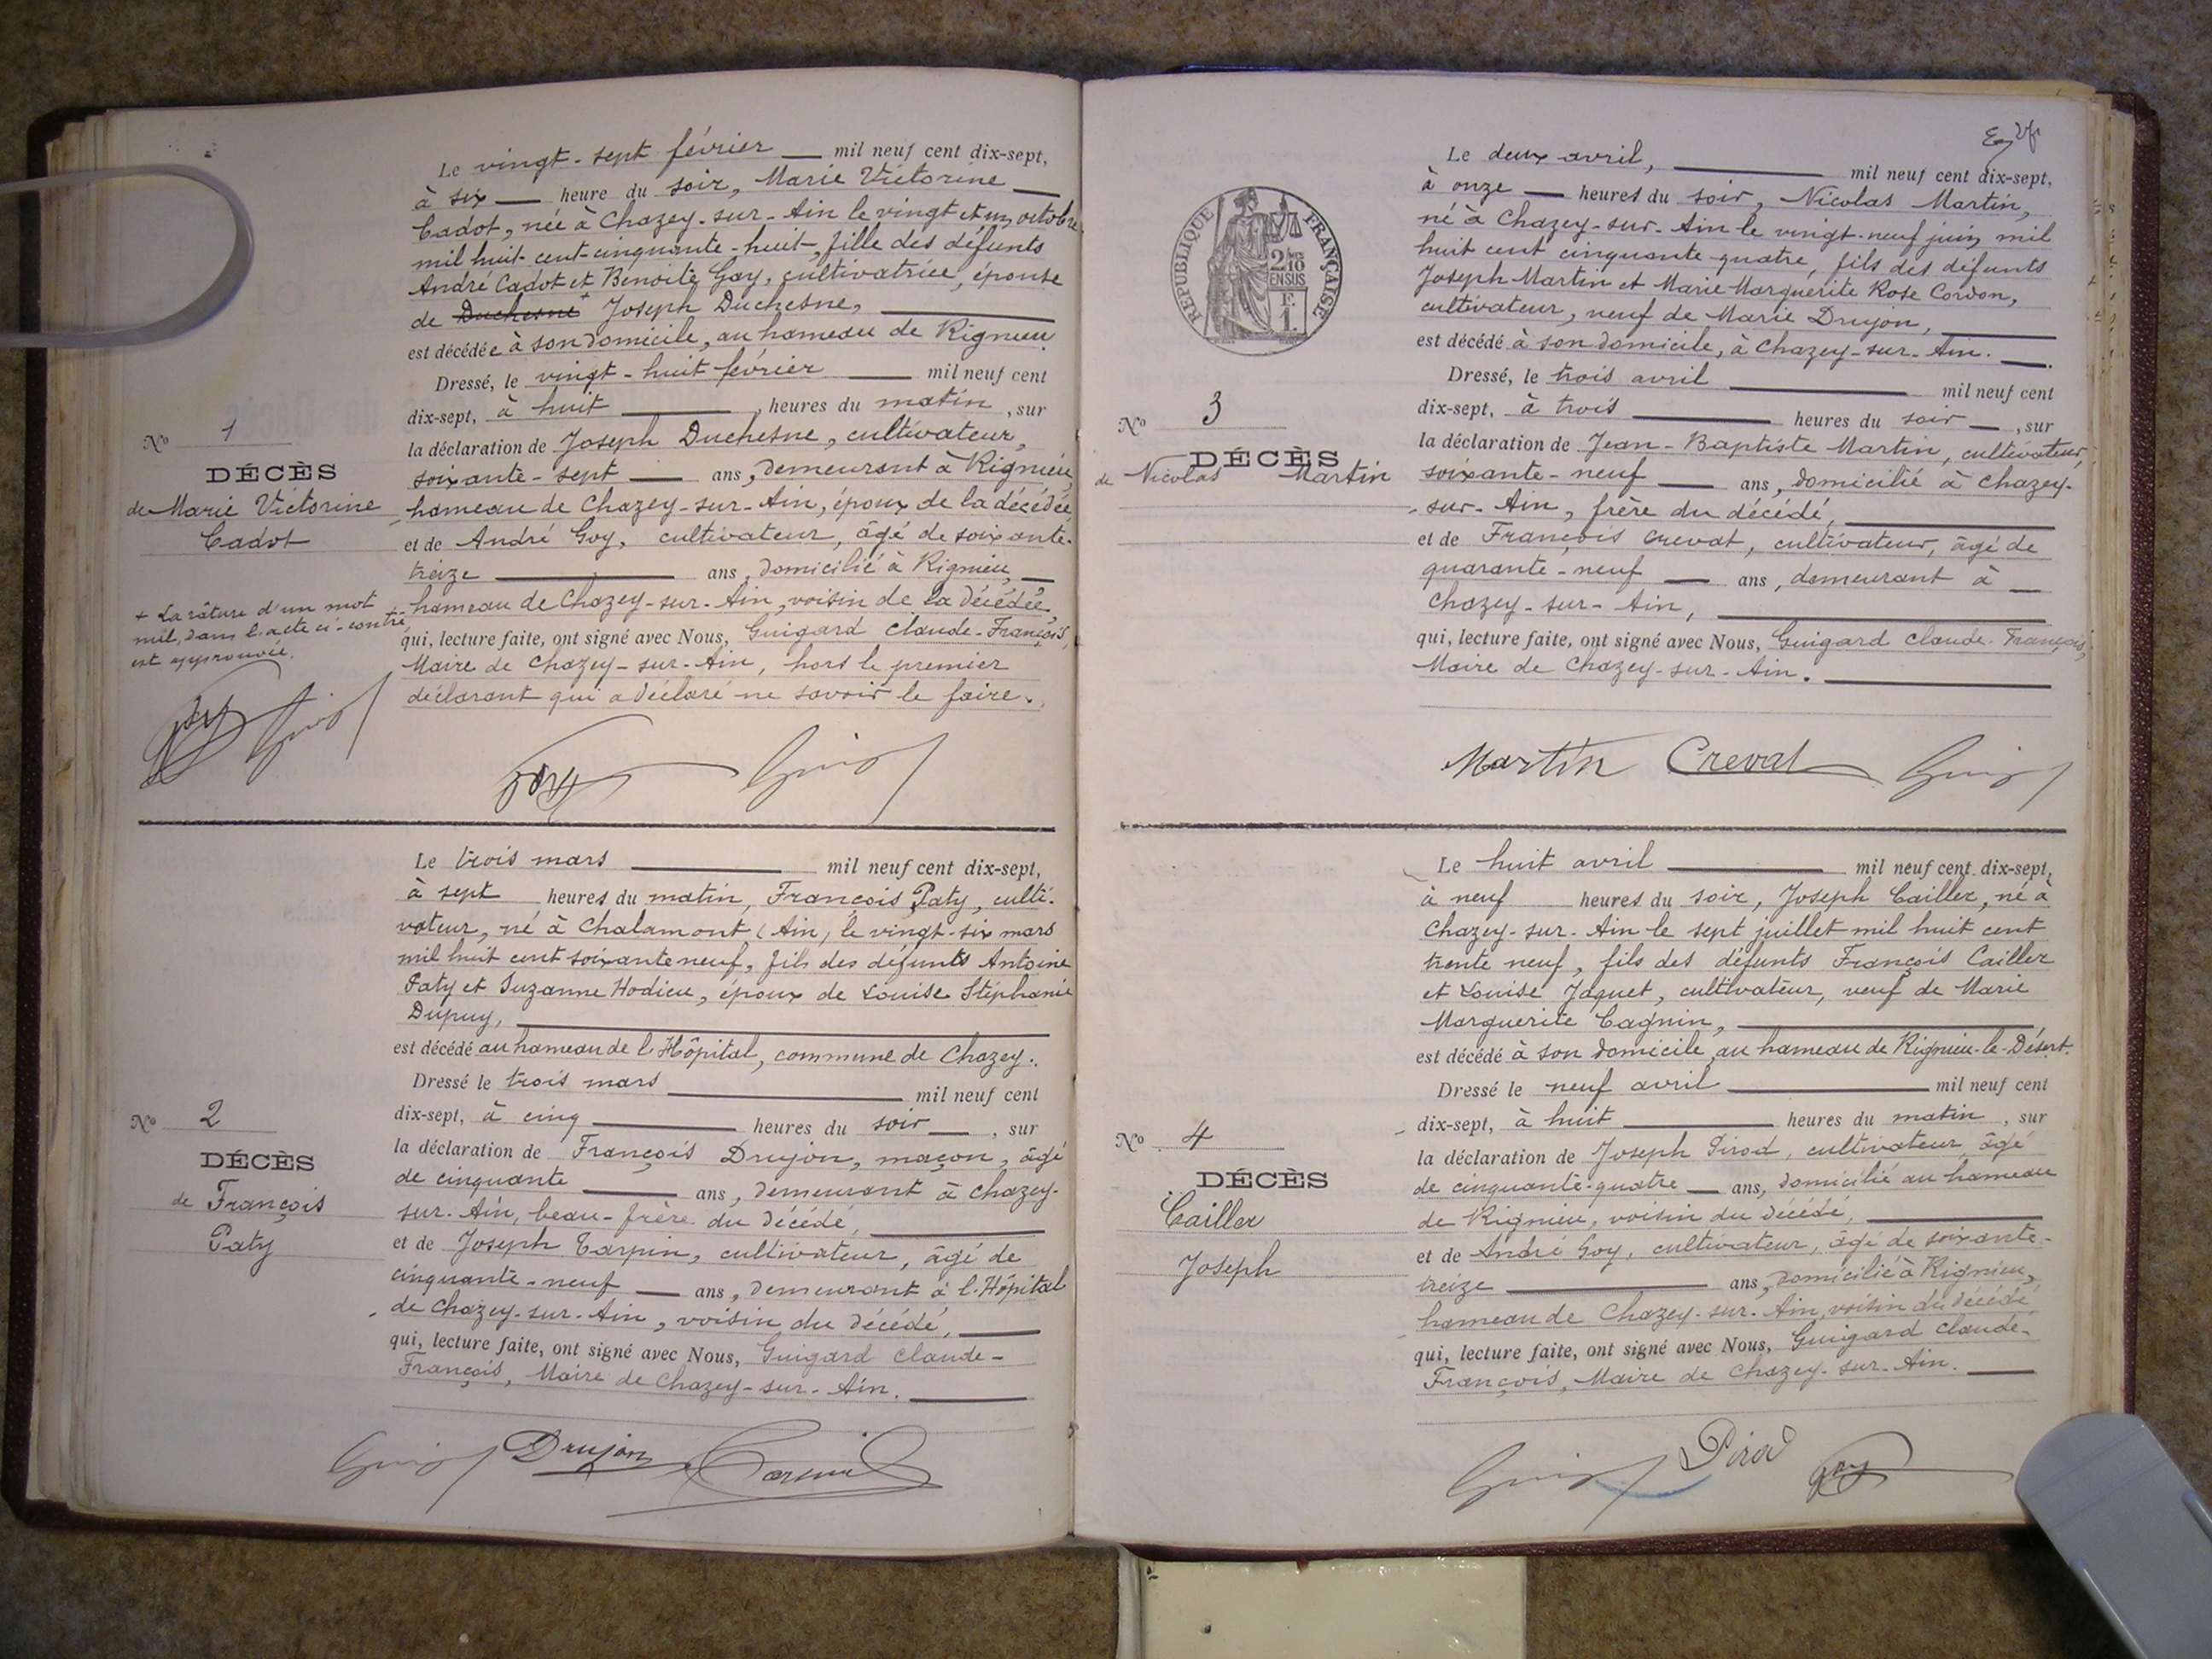 Le vingt-sept février mil neuf cent dix-sept,
à six heure du soir, Marie Victorine
Cadot, née à Chazey-sur-Ain le vingt et un octobre
mil huit cent cinquante-huit, fille des défunts
André Cadot et Benoite Goy, cultivatrice, épouse
de Duchesne + Joseph Duchesne,
est décédée à son domicile, au hameau de Rignieu.
Dressé, le vingt-huit février mil neuf cent
dix-sept, à huit, heures du matin, sur
la déclaration de Joseph Duchesne, cultivateur,
soixante-sept ans, demeurant à Rignieu,
hameau de Chazey-sur-Ain, époux de la décédée,
et de André Goy, cultivateur, âgé de soixante-
treize ans, domicilié à Rignieu,
hameau de Chazey-sur-Ain, voisin de la décédée,
qui, lecture faite, ont signé avec Nous, Guigard Claude-François,
Maire de Chazey-sur-Ain, hors le premier
déclarant qui a déclaré ne savoir le faire.
No 1
DÉCÈS
de Marie Victorine
Cadot
+ La râture d'un mot
nul, dans l'acte ci-contre
est approuvée.
Goy
Le trois mars mil neuf cent dix-sept,
à sept heures du matin, François Paty, culti-
vateur, né à Chalamont (Ain) le vingt-six mars
mil huit cent soixante neuf, fils des défunts Antoine
Paty et Suzanne Hodieu, époux de Louise Stéphanie
Dupuy,
est décédé au hameau de l'Hôpital, commune de Chazey.
Dressé le trois mars mil neuf cent
dix-sept, à cinq heures du soir, sur
la déclaration de François Drujon, maçon, âgé
de cinquante ans, demeurant à Chazey-
sur-Ain, beau-frère du décédé,
et de Joseph Tarpin, cultivateur, âgé de
cinquante-neuf ans, demeurant à l'Hôpital
de Chazey-sur-Ain, voisin du décédé,
qui, lecture faite, ont signé avec Nous, Guigard Claude-
François, Maire de Chazey-sur-Ain.
No 2
DÉCÈS
de François
Paty
Drujon
RÉPUBLIQUE FRANÇAISE
2/10
EN SUS
1 F.
Le deux avril, mil neuf cent dix-sept,
à onze heures du soir, Nicolas Martin,
né à Chazey-sur-Ain le vingt-neuf juin mil
huit cent cinquante-quatre, fils des défunts
Joseph Martin et Marie Marguerite Rose Cordon,
cultivateur, veuf de Marie Drujon,
est décédé à son domicile, à Chazey-sur-Ain.
Dressé, le trois avril mil neuf cent
dix-sept, à trois heures du soir, sur
la déclaration de Jean-Baptiste Martin, cultivateur,
soixante-neuf ans, domicilié à Chazey-
sur-Ain, frère du décédé,
et de François Crevat, cultivateur, âgé de
quarante-neuf ans, demeurant à
Chazey-sur-Ain,
qui, lecture faite, ont signé avec Nous, Guigard Claude-François,
Maire de Chazey-sur-Ain.
No 3
DÉCÈS
de Nicolas Martin
Martin Crevat
Le huit avril mil neuf cent dix-sept,
à neuf heures du soir, Joseph Cailler, né à
Chazey-sur-Ain le sept juillet mil huit cent
trente neuf, fils des défunts François Cailler
et Louise Jaquet, cultivateur, veuf de Marie
Marguerite Cagnin,
est décédé à son domicile, au hameau de Rignieu-le-Désert.
Dressé le neuf avril mil neuf cent
dix-sept, à huit heures du matin, sur
la déclaration de Joseph Pirod, cultivateur, âgé
de cinquante-quatre ans, domicilié au hameau
de Rignieu, voisin du décédé,
et de André Goy, cultivateur, âgé de soixante-
treize ans, domicilié à Rignieu,
hameau de Chazey-sur-Ain, voisin du décédé,
qui, lecture faite, ont signé avec Nous, Guigard Claude-
François, Maire de Chazey-sur-Ain.
No 4
DÉCÈS
Cailler
Joseph
Pirod Goy